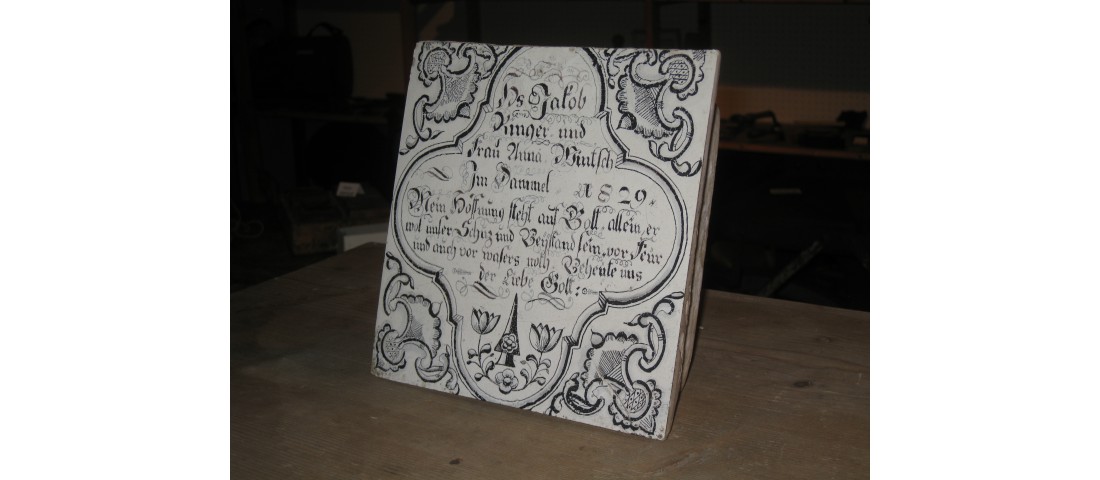 Hs Jakob
Ringer und
Frau Anna Wintsch
Im Dammel A 1829.
Mein Hoffnung steht auf Gott allein, er
wol unser Schuz und Beystand sein, vor Feür
und auch vor wasers noth, Beheute uns
der Liebe Gott: